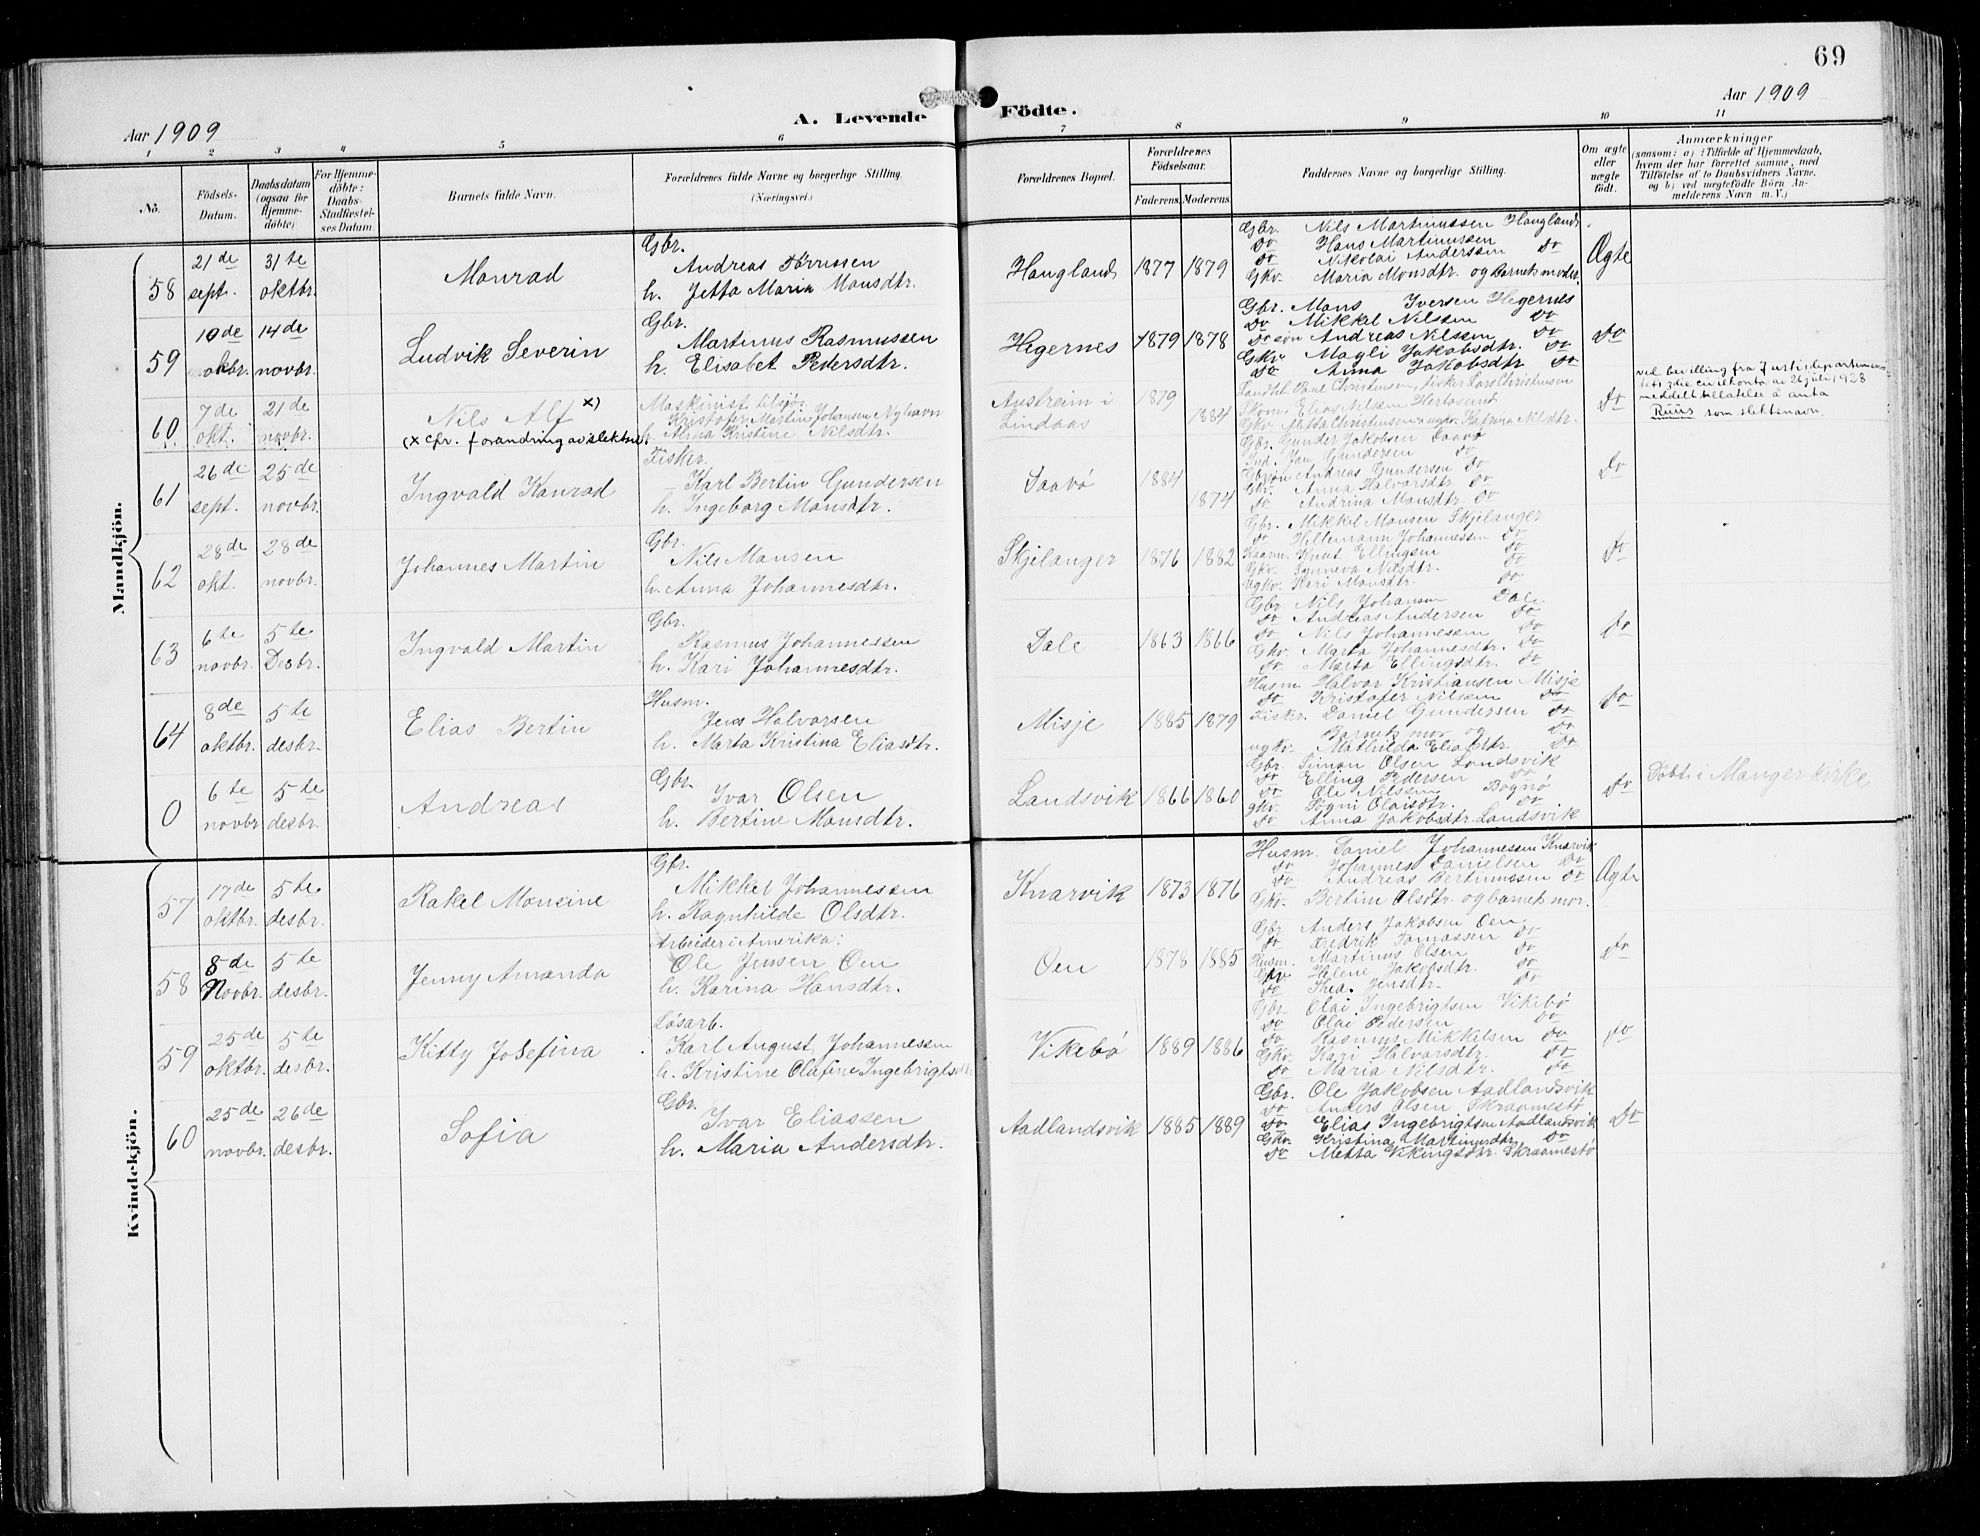 69
Aar 1909
A. Levende Födte.
Aar 1909
1 2 3 4 5 6 7 8 9 10 11
No.
Födsels-Datum.
Daabsdatum (ogsaa for Hjemme-døbte)
For Hjemme-döbte: Daabs-Stadfæstel-ses Datum.
Barnets fulde Navn.
Forældrenes fulde Navne og borgerlige Stilling.
(Næringsvei.)
Forældrenes Bopæl.
Forældrenes Födselsaar.
Faderens. Moderens.
Faddernes Navne og borgerlige Stilling.
Om ægte eller uægte født.
Anmærkninger
(saasom: a) i Tilfælde af Hjemmedaab,
hvem der har forrettet samme, med
Tilföielse af to Daabsvidners Navne,
og b) ved uægtefödte Börn An-
melderens Navn m. V.)
Mandkjön.
58 21de sept. 31te oktbr. Monrad
Gbr.
Andreas Törrissen
h. Jetta Maria Monsdtr.
Haugland 1877 1879
Gbr. Nils Martinussen Haugland
Do Hans Martinussen Do
Do Nikolai Anderssen
Gkv. Maria Monsdtr. og Barnets moder.
Ægte
59 10de okbr. 14de novbr. Ludvik Severin
Gbr.
Martinus Rasmussen
h. Elisabet Pedersdtr.
Hegernes 1879 1878
Gbr. Mons Iversen Hegernes
Do Mikkel Nilsen Do
Do søn Andreas Nilssen Do
Gkv Magli Jakobsdtr. Do
Do Anna Jakobsdtr Do
Do
60. 7de okt. 21de novbr. Nils Alf x)
(x cfr. forandring av slektsn.
Maskinist tilsjøs
Kristofer Martin Johansen Nyhavn
h. Alma Kristine Nilsdtr.
Austreim i Lindaas 1879 1884
Skom. Elias Nilsen Hertøsund
Do
ved bevilling fra Justisdepartemen-
tets 3die civilkontor av 26 juli 1928
meddelt tillatelse å anta
Ruus som slektsnavn.
61 26de sept. 25de novbr. Ingvald Konrad
Fisker.
Karl Bertin Gundersen
h. Ingeborg Monsdtr.
Saabø 1884 1874
Gbr. Gunder Jakobsen Saabø
Ind. Jan Gundersen Do
Gbrsøn Andreas Gundersen Do
Gkv. Anna Halvarsdtr Do
Do Andrina Monsdtr. Do
Do
62 28de okt. 28de novbr. Johannes Martin
Gbr.
Nils Monsen
h. Anna Johannesdtr.
Skjelanger 1876 1882
Gbr. Mikkel Monsen Skjelanger
Do Willemann Johannessen Do
Kaarm. Knut Ellingsen Do
Gkv. Synneva Nilsdtr. Do
Ugkv. Kari Monsdtr. Do
Do
63 6te novbr. 5te Desbr. Ingvald Martin
Gbr.
Rasmus Johannessen
h. Kari Johannesdtr.
Dale 1863 1866
Gbr Nils Johansen Dale
Do Andreas Andersen Do
Do Nils Johannessen Do
Gkv. Marta Johannesdtr. Do
Do Marta Ellingsdtr. Do
Do
64 8de oktbr. 5te desbr. Elias Bertin
Husm.
Jens Halvorsen
h. Marta Kristina Eliasdtr.
Misje 1885 1879
Husm. Halvor Kristiansen Misje
Do Kristofer Nilsen Do
Fisker. Daniel Gundersen Do
Barnets mor og Do
ugkv. Mathilda Eliasdtr Do
Do
0 6te novbr 5te desbr. Andreas
Gbr.
Ivar Olsen
h. Bertine Monsdtr.
Landsvik 1866 1860
Gbr. Simon Olsen Landsvik
Do Elling Pedersen Do
Do Ole Nilssen Bognø
gkv. Sögni Olaisdtr. Do
Do Anna Jakobsdtr. Landsvik
Do
Döbt i Manger kirke
Kvindekjön.
57 17de oktbr. 5te desbr. Rakel Monsine
Gbr.
Mikkel Johannessen
h. Ragnhilde Olsdtr.
Knarvik 1873 1876
Husm. Daniel Johannessen Knarvik
Do Johannes Danielsen Do
Do Andreas Bertinussen Do
Gkv. Bertine Olsdtr. og barnets mor.
Ægte
58 8de Novbr. 5te desbr. Jenny Amanda
Arbeider i Amerika:
Ole Jensen Oen
h. Karina Hansdtr.
Oen 1878 1885
Gbr Anders Jakobsen Oen
Do Fredrik Tomassen Do
Husm. Martinus Olsen Do
Gkv Helene Jakobsdtr. Do
Do Thea Jensdtr. Do
Do
59 25de oktbr. 5te desbr. Kitty Josefina
Løsarb.
Karl August Johannessen
h. Kristine Olafine Ingebrigtsdtr.
Vikebø 1889 1886
Gbr Olai Ingebrigtsen Vikebø
Do Olai Pedersen Do
Do Rasmus Mikkelsen Do
Gkv. Kari Halvarsdtr. Do
Do Maria Nilsdtr. Do
Do
60 25de novbr. 26de desbr. Sofia
Gbr.
Ivar Eliassen
h. Maria Andersdtr.
Aadlandsvik 1885 1889
Gbr. Ole Jakobsen Aadlandsvik
Do Anders Olsen Skraamestø
Do Elias Ingebrigtsen Aadlandsvik
Gkv. Kristina Martinusdtr. Do
Do Metta Vikingsdtr. Skraamestø
Do